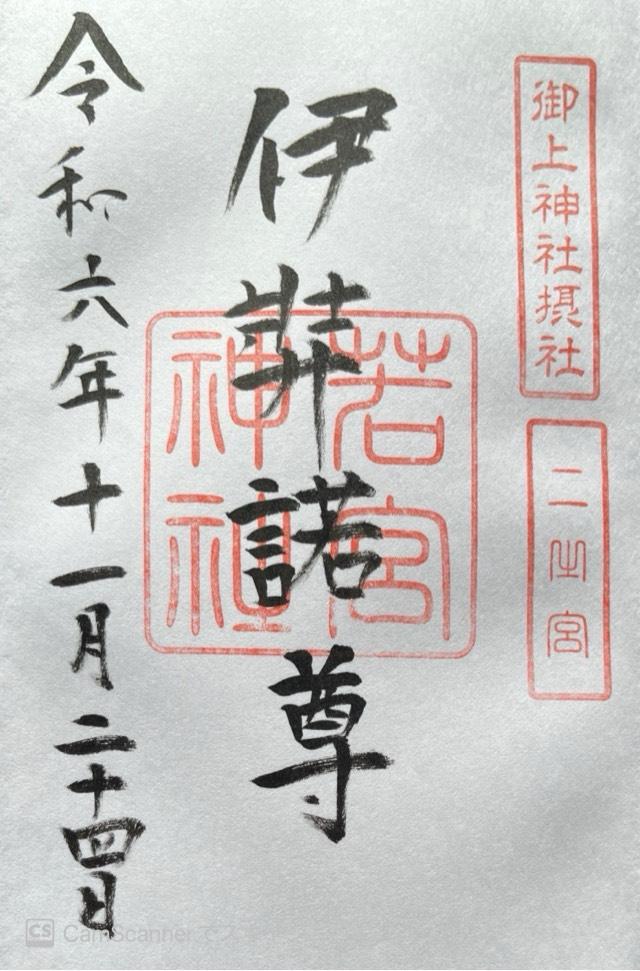 御上神社摂社
二之宮
伊弉諾尊
若宮
神社
令和六年十一月二十四日
CS CamScanner でス